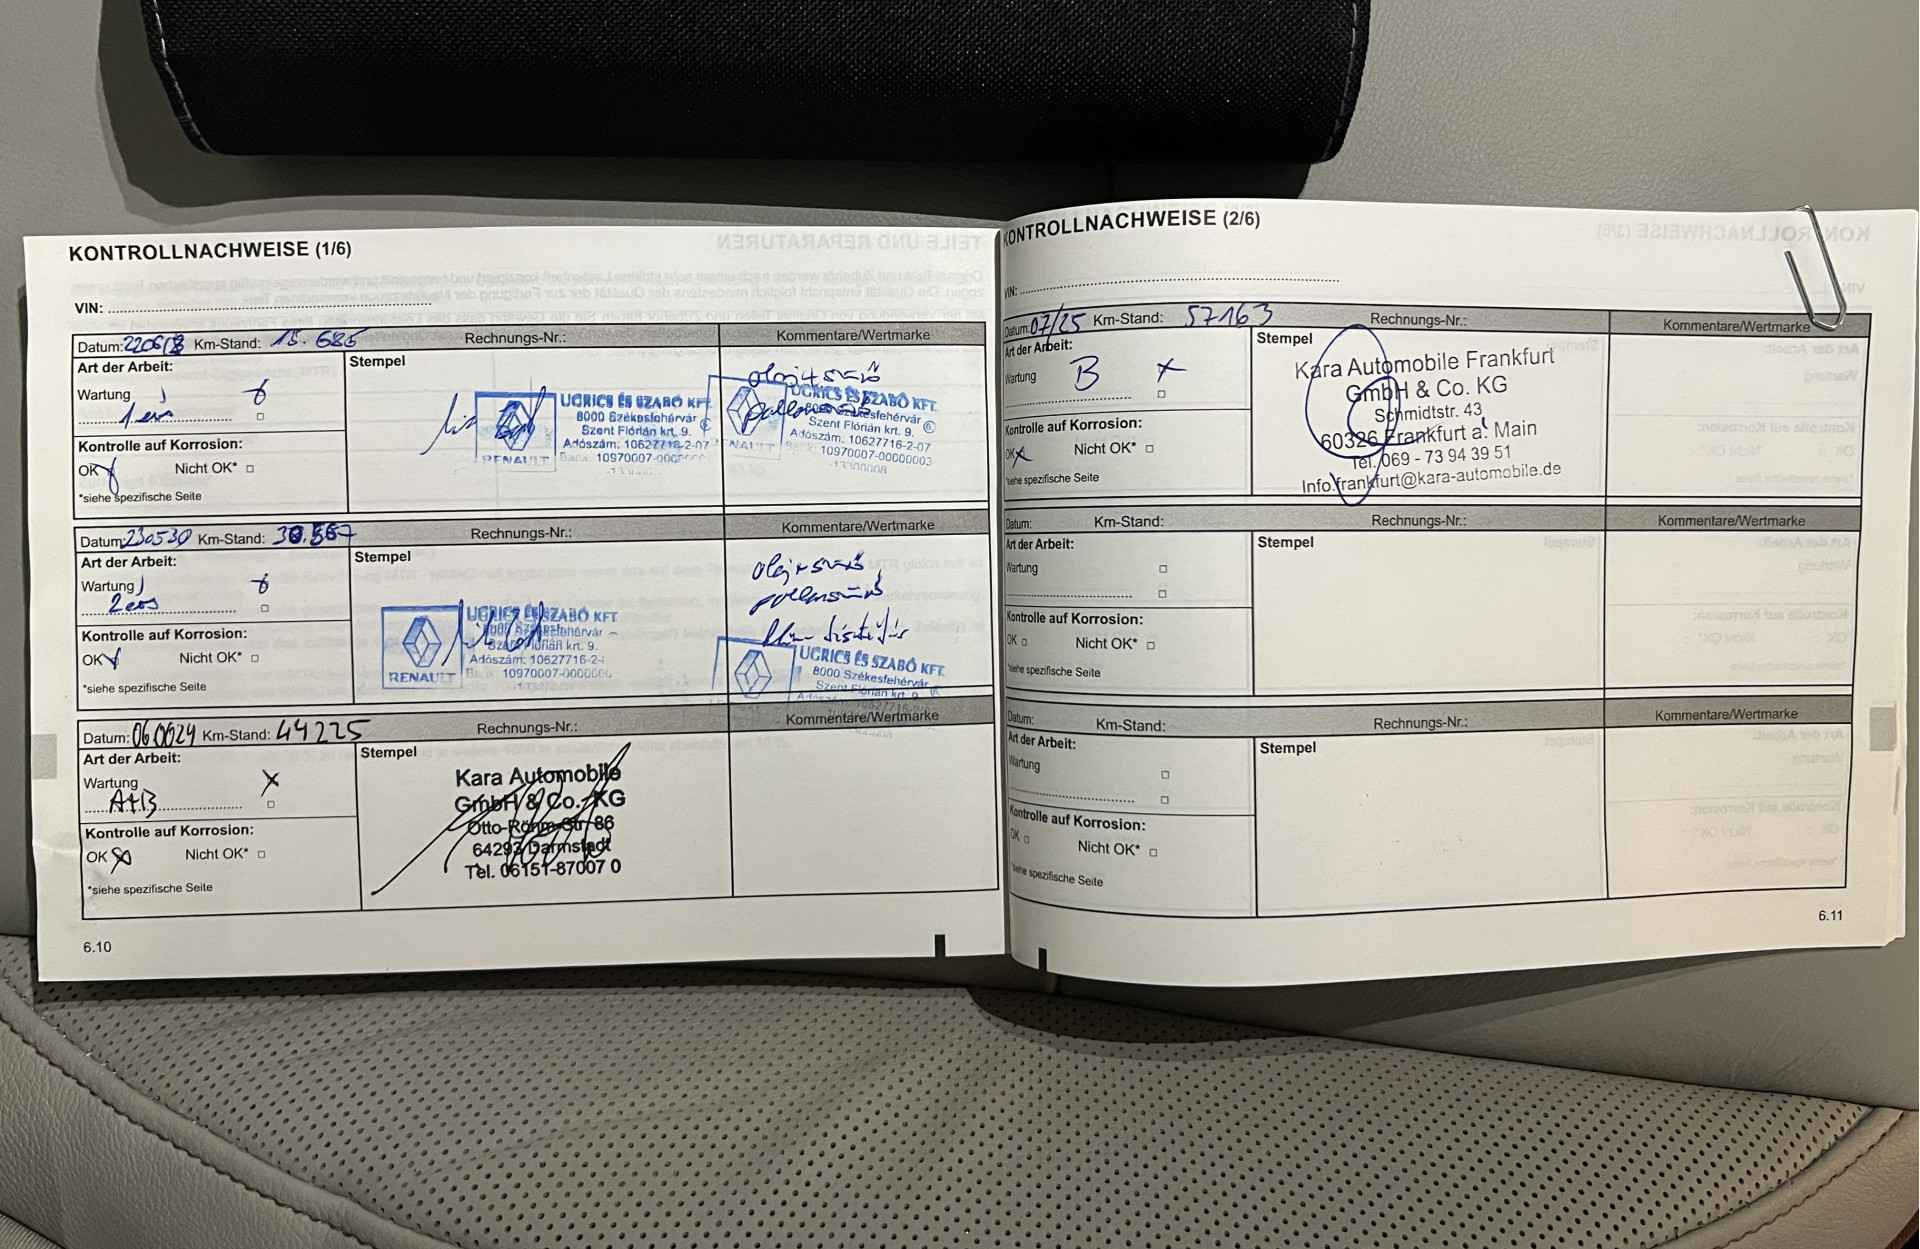 KONTROLLNACHWEISE (1/6)
VIN:
Datum: Km-Stand: 15.685 Rechnungs-Nr.: Kommentare/Wertmarke
Art der Arbeit:
Stempel
Wartung
1 eves
Kontrolle auf Korrosion:
OK Nicht OK*
*siehe spezifische Seite
UGRICS ÉS SZABÓ KFT.
8000 Székesfehérvár
Szent Flórián krt. 9.
Adószám: 10627716-2-07
Bank: 10970007-000000
RENAULT
UGRICS ÉS SZABÓ KFT.
8000 Székesfehérvár
Szent Flórián krt. 9.
Adószám: 10627716-2-07
10970007-00000003
RENAULT
Datum: 230530 Km-Stand: 30.567 Rechnungs-Nr.: Kommentare/Wertmarke
Art der Arbeit:
Stempel
Wartung
2 eves
Kontrolle auf Korrosion:
OK Nicht OK*
*siehe spezifische Seite
UGRICS ÉS SZABÓ KFT
8000 Székesfehérvár
Szent Flórián krt. 9.
Adószám: 10627716-2-
10970007-0000000
RENAULT
UGRICS ÉS SZABÓ KFT.
8000 Székesfehérvár
Szent Flórián krt. 9.
Datum: 060624 Km-Stand: 44225 Rechnungs-Nr.: Kommentare/Wertmarke
Art der Arbeit:
Stempel
Wartung
A+B
Kontrolle auf Korrosion:
OK Nicht OK*
*siehe spezifische Seite
Kara Automobile
GmbH & Co. KG
Otto-Röhm-Str. 86
64293 Darmstadt
Tel. 06151-87007 0
6.10
KONTROLLNACHWEISE (2/6)
VIN:
Datum: 07/25 Km-Stand: 57163 Rechnungs-Nr.: Kommentare/Wertmarke
Art der Arbeit:
Stempel
Wartung B
Kontrolle auf Korrosion:
OK Nicht OK*
*siehe spezifische Seite
Kara Automobile Frankfurt
GmbH & Co. KG
Schmidtstr. 43
60326 Frankfurt a. Main
Tel. 069 - 73 94 39 51
Info.frankfurt@kara-automobile.de
Datum: Km-Stand: Rechnungs-Nr.: Kommentare/Wertmarke
Art der Arbeit:
Stempel
Wartung
Kontrolle auf Korrosion:
OK Nicht OK*
*siehe spezifische Seite
Datum: Km-Stand: Rechnungs-Nr.: Kommentare/Wertmarke
Art der Arbeit:
Stempel
Wartung
Kontrolle auf Korrosion:
OK Nicht OK*
*siehe spezifische Seite
6.11